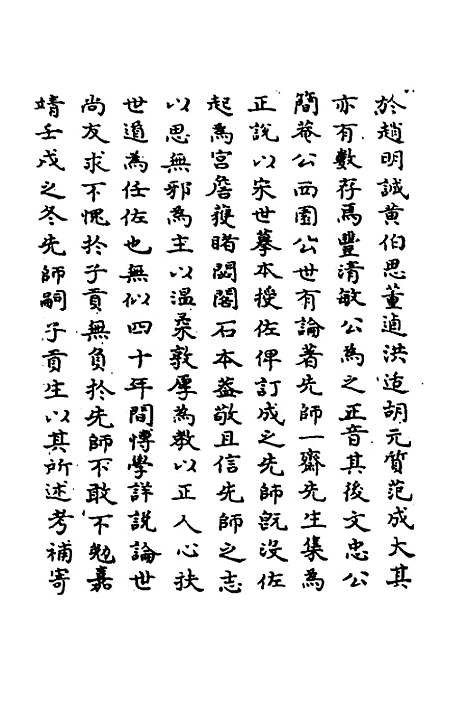 於趙明誠黄伯思董逌洪适胡元質范成大其
亦有數存焉豐清敏公為之正音其後文忠公
簡菴公西園公世有論著先師一齋先生集為
正說以宋世摹本授佐俾訂成之先師旣没佐
起為宫詹獲睹閟閣石本益敬且信先師之志
以思無邪為主以溫柔敦厚為教以正人心扶
世道為任佐也無似四十年間愽學詳說論世
尚友求不愧於子貢無負於先師不敢不勉嘉
靖壬戌之冬先師嗣子貢生以其所述考補寄